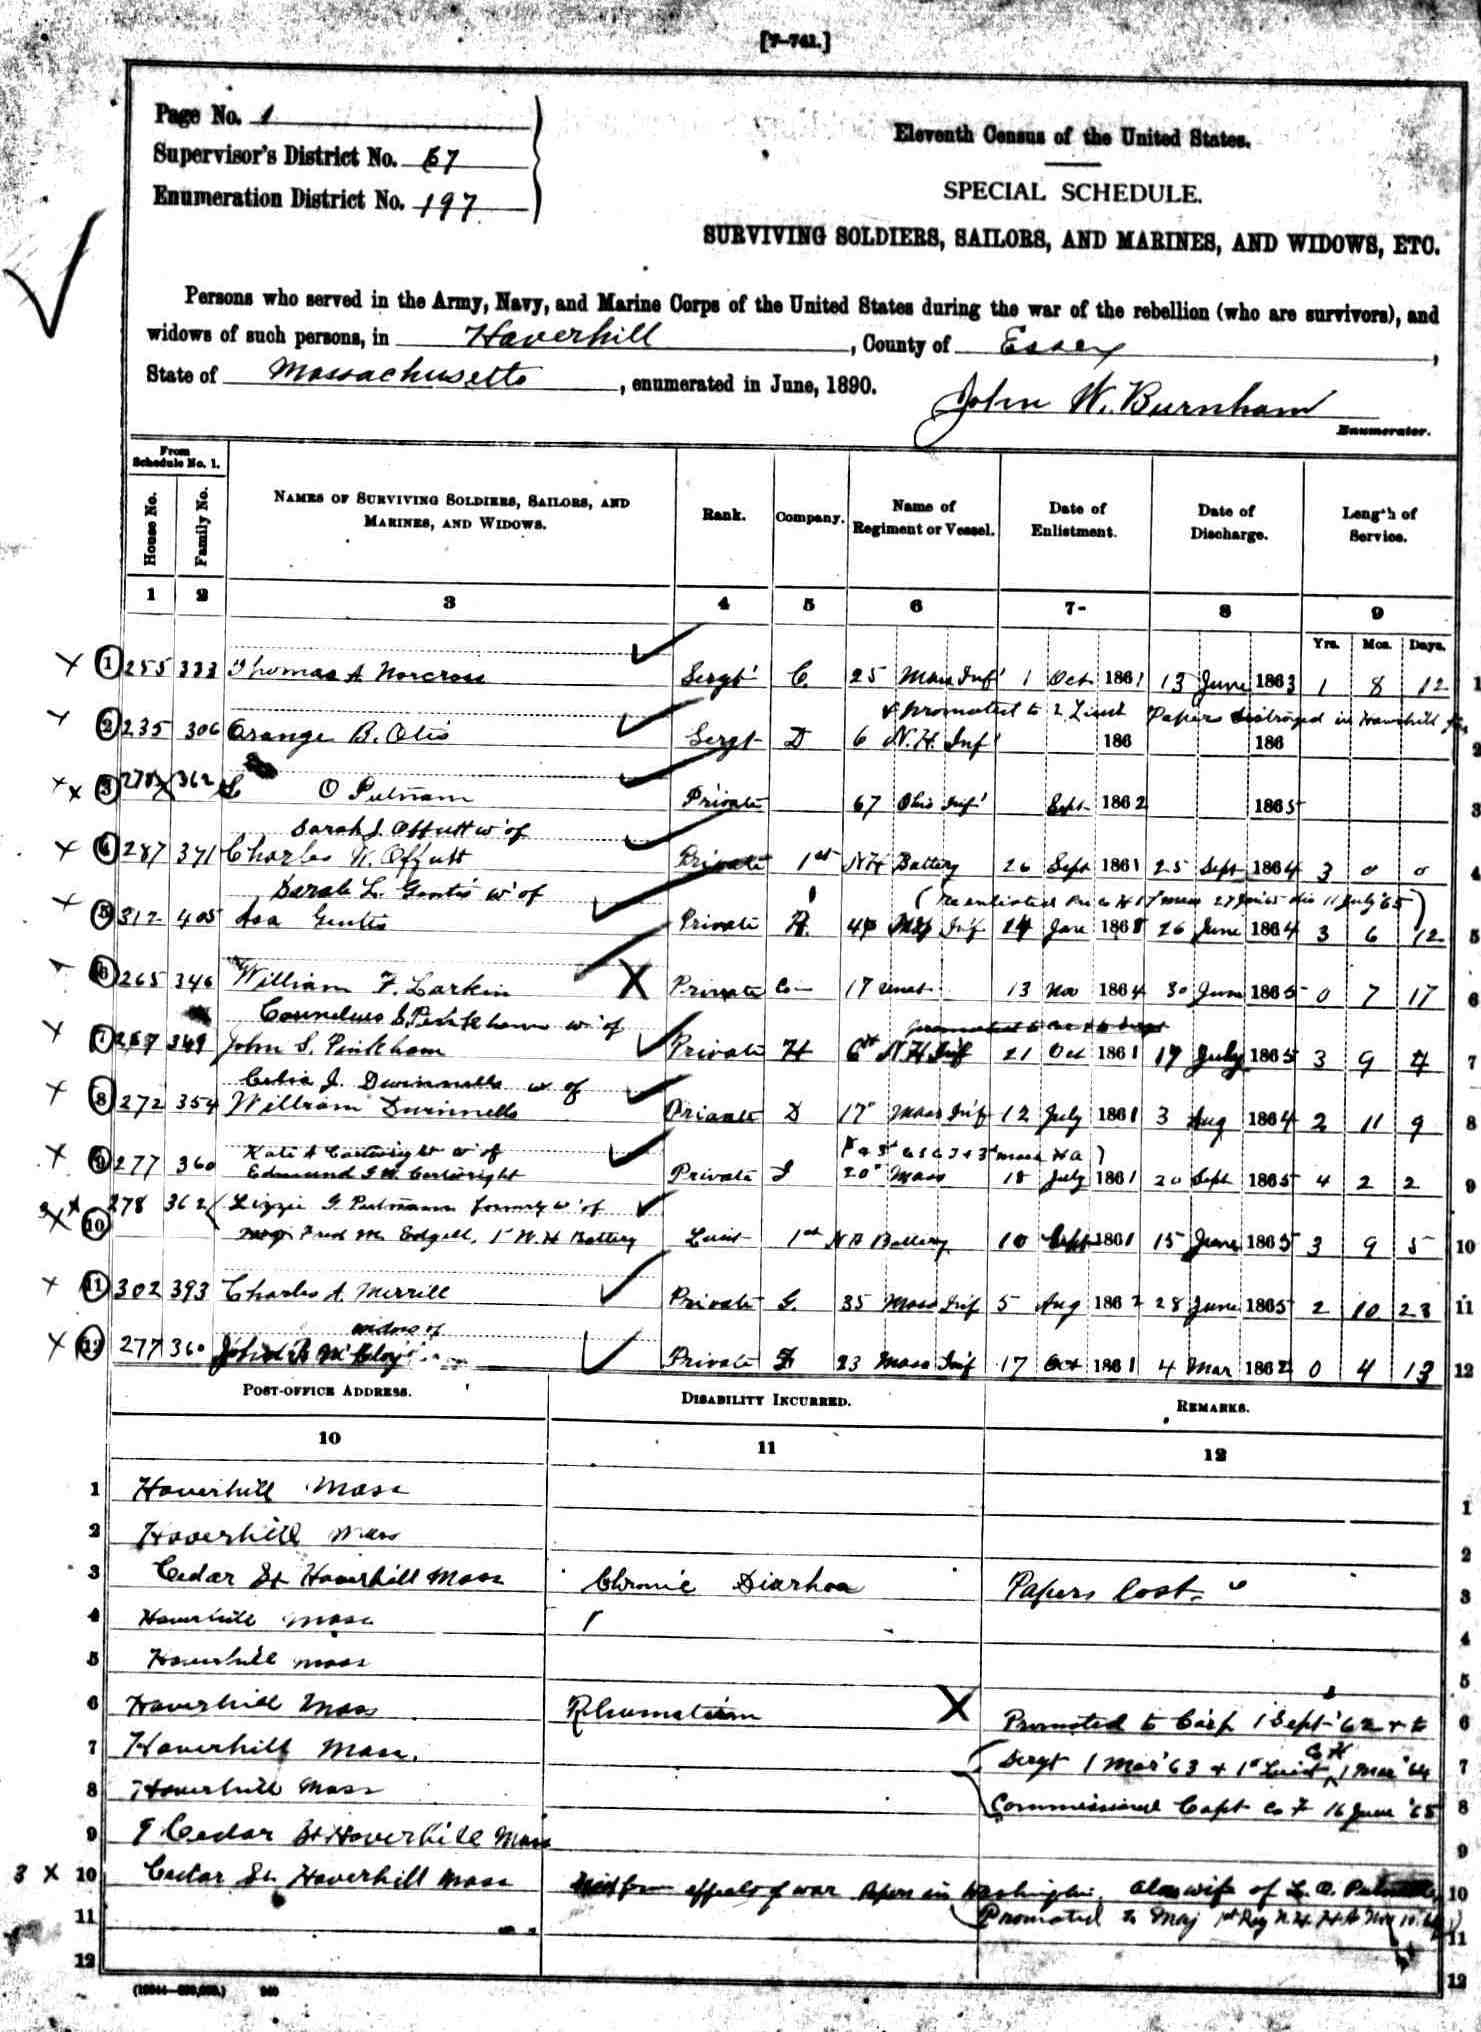 [7-741.]
Page No. 1
Supervisor's District No. 67
Enumeration District No. 197
Eleventh Census of the United States.
SPECIAL SCHEDULE.
SURVIVING SOLDIERS, SAILORS, AND MARINES, AND WIDOWS, ETC.
Persons who served in the Army, Navy, and Marine Corps of the United States during the war of the rebellion (who are survivors), and
widows of such persons, in Haverhill, County of Essex,
State of Massachusetts, enumerated in June, 1890.
John W. Burnham
Enumerator.
From Schedule No. 1.
House No. Family No. NAMES OF SURVIVING SOLDIERS, SAILORS, AND MARINES, AND WIDOWS. Rank. Company. Name of Regiment or Vessel. Date of Enlistment. Date of Discharge. Length of Service.
1 2 3 4 5 6 7 8 9
Yrs. Mos. Days.
1 255 333 Thomas A Norcross Sergt C. 25 Mass Inf 1 Oct 1861 13 June 1863 1 8 12 1
& promoted to 2 Lieut Papers destroyed in Haverhill
2 235 306 Orange B. Otis Sergt D 6 N.H. Inf 186 186 2
3 278 362 L O Putnam Private 67 Ohio Inf Sept 1862 1865 3
Sarah J. Offutt w' of
4 287 371 Charles N. Offutt Private 1st NH Battery 26 Sept 1861 25 Sept 1864 3 0 0 4
Sarah L. w' of (Reenlisted 11 July 65)
5 312 405 Asa Private Inf 1861 26 June 1864 3 6 12 5
6 265 346 William F. Larkin Private Co 17 unat 13 Nov 1864 30 June 1865 0 7 17 6
S. Pinkham w' of
7 267 349 John S. Pinkham Private H 6th N H Inf 21 Oct 1861 17 July 1865 3 9 7
Celia J. Dwinnells w of
8 272 354 William Dwinnells Private D 17 Mass Inf 12 July 1861 3 Aug 1864 2 11 9 8
Kate A Cartwright w' of
9 277 360 Edmund Cartwright Private I 20 Mass 18 July 1861 20 Sept 1865 4 2 2 9
278 362 Lizzie G. Putnam formerly w' of
10 Fred M. Edgell, 1 N. H Battery Lieut 1st N H Battery 10 Sept 1861 15 June 1865 3 9 5 10
11 302 393 Charles A. Merrill Private G. 35 Mass Inf 5 Aug 1862 28 June 1865 2 10 23 11
widow of
12 277 360 John Private 23 Mass Inf 17 Oct 1861 4 Mar 1862 0 4 13 12
POST-OFFICE ADDRESS. DISABILITY INCURRED. REMARKS.
10 11 12
1 Haverhill Mass 1
2 Haverhill Mass 2
3 Cedar St Haverhill Mass Chronic Diarhoa Papers lost. 3
4 Haverhill Mass 4
5 Haverhill Mass 5
6 Haverhill Mass Rhumatism X Promoted to Corp 1 Sept '62 & to 6
7 Haverhill Mass. Sergt 1 Mar '63 & 1st Lieut Co H 1 Mar '64 7
8 Haverhill Mass Commissioned Capt Co F 16 June '65 8
9 Cedar St Haverhill Mass 9
3 X 10 Cedar St. Haverhill Mass Died from effects of war Papers in Washington. Also wife of L. O. Putnam 10
11 Promoted to Maj 1st Reg N.H. H A Nov 11
12 12